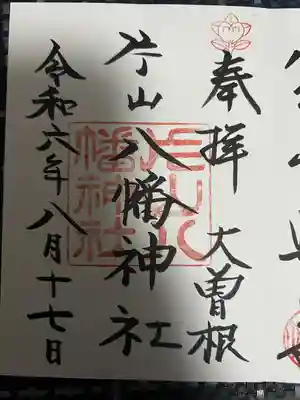 奉拝 大曽根
片山八幡神社
令和六年八月十七日
片山八幡神社